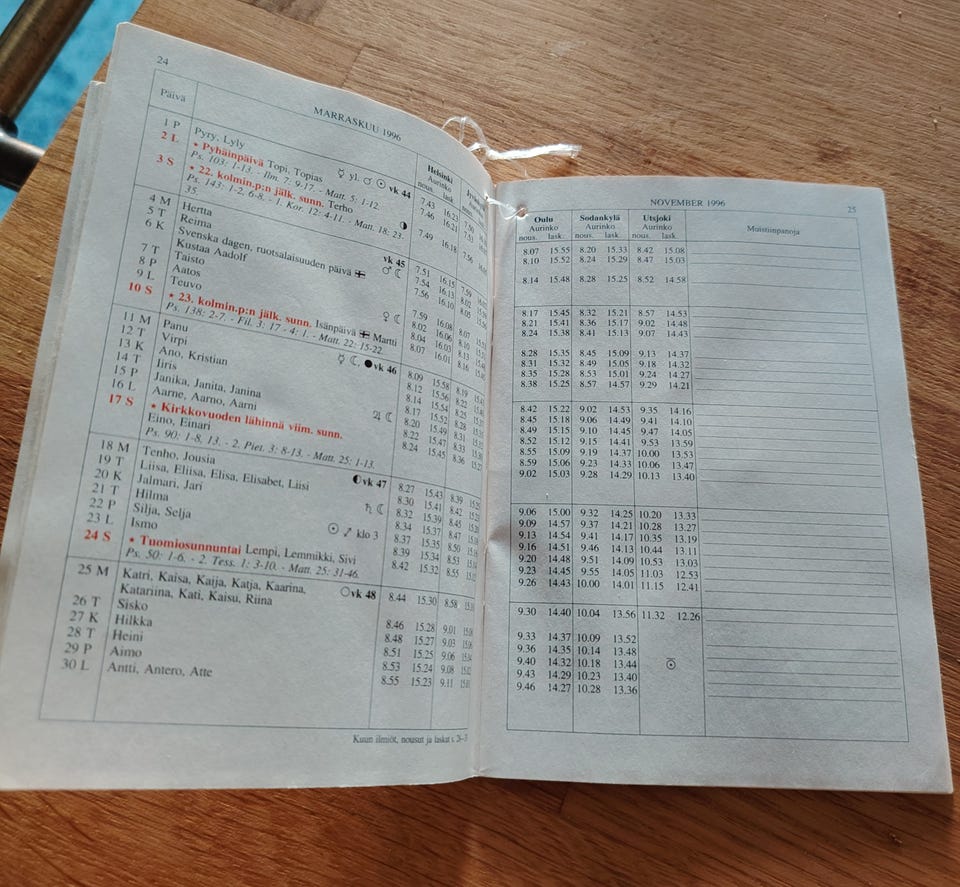 24
MARRASKUU 1996
Päivä
Helsinki
Aurinko
nous. lask.
1 P Pyry, Lyly 7.43 16.23
2 L * Pyhäinpäivä Topi, Topias ☿ yl. ♂ ☉ vk 44 7.46 16.21
Ps. 103: 1-13. - Ilm. 7: 9-17. - Matt. 5: 1-12.
3 S * 22. kolmin.p:n jälk. sunn. Terho 7.49 16.18 7.56
Ps. 143: 1-2, 6-8. - 1. Kor. 12: 4-11. - Matt. 18: 23-
35.
4 M Hertta vk 45 7.51 16.15 7.59
5 T Reima 7.54 16.13 8.02
6 K Svenska dagen, ruotsalaisuuden päivä ♂ ☾ 7.56 16.10 8.05
Kustaa Aadolf
7 T Taisto ♀ ☾ 7.59 16.08 8.07
8 P Aatos 8.02 16.06 8.10
9 L Teuvo 8.04 16.03 8.13
10 S * 23. kolmin.p:n jälk. sunn. Isänpäivä Martti 8.07 16.01 8.16
Ps. 138: 2-7. - Fil. 3: 17 - 4: 1. - Matt. 22: 15-22.
11 M Panu ☿ ☾, ●vk 46 8.09 15.58 8.19
12 T Virpi 8.12 15.56 8.22
13 K Ano, Kristian 8.14 15.54 8.25
14 T Iiris 8.17 15.52 8.28
15 P Janika, Janita, Janina ♃ ☾ 8.20 15.49 8.31
16 L Aarne, Aarno, Aarni 8.22 15.47 8.33
17 S * Kirkkovuoden lähinnä viim. sunn. 8.24 15.45 8.36
Eino, Einari
Ps. 90: 1-8, 13. - 2. Piet. 3: 8-13. - Matt. 25: 1-13.
18 M Tenho, Jousia ◐vk 47 8.27 15.43 8.39
19 T Liisa, Eliisa, Elisa, Elisabet, Liisi 8.30 15.41 8.42
20 K Jalmari, Jari ♄ ☾ 8.32 15.39 8.45
21 T Hilma 8.34 15.37 8.47
22 P Silja, Selja ☉ ♐ klo 3 8.37 15.35 8.50
23 L Ismo 8.39 15.34 8.53
24 S * Tuomiosunnuntai Lempi, Lemmikki, Sivi 8.42 15.32 8.55
Ps. 50: 1-6. - 2. Tess. 1: 3-10. - Matt. 25: 31-46.
25 M Katri, Kaisa, Kaija, Katja, Kaarina, ○vk 48 8.44 15.30 8.58
Katariina, Kati, Kaisu, Riina
26 T Sisko 8.46 15.28 9.01
27 K Hilkka 8.48 15.27 9.03
28 T Heini 8.51 15.25 9.06
29 P Aimo 8.53 15.24 9.08
30 L Antti, Antero, Atte 8.55 15.23 9.11
Kuun ilmiöt, nousut ja laskut s.
NOVEMBER 1996
25
Oulu Sodankylä Utsjoki Muistiinpanoja
Aurinko Aurinko Aurinko
nous. lask. nous. lask. nous. lask.
8.07 15.55 8.20 15.33 8.42 15.08
8.10 15.52 8.24 15.29 8.47 15.03
8.14 15.48 8.28 15.25 8.52 14.58
8.17 15.45 8.32 15.21 8.57 14.53
8.21 15.41 8.36 15.17 9.02 14.48
8.24 15.38 8.41 15.13 9.07 14.43
8.28 15.35 8.45 15.09 9.13 14.37
8.31 15.32 8.49 15.05 9.18 14.32
8.35 15.28 8.53 15.01 9.24 14.27
8.38 15.25 8.57 14.57 9.29 14.21
8.42 15.22 9.02 14.53 9.35 14.16
8.45 15.18 9.06 14.49 9.41 14.10
8.49 15.15 9.10 14.45 9.47 14.05
8.52 15.12 9.15 14.41 9.53 13.59
8.55 15.09 9.19 14.37 10.00 13.53
8.59 15.06 9.23 14.33 10.06 13.47
9.02 15.03 9.28 14.29 10.13 13.40
9.06 15.00 9.32 14.25 10.20 13.33
9.09 14.57 9.37 14.21 10.28 13.27
9.13 14.54 9.41 14.17 10.35 13.19
9.16 14.51 9.46 14.13 10.44 13.11
9.20 14.48 9.51 14.09 10.53 13.03
9.23 14.45 9.55 14.05 11.03 12.53
9.26 14.43 10.00 14.01 11.15 12.41
9.30 14.40 10.04 13.56 11.32 12.26
9.33 14.37 10.09 13.52
9.36 14.35 10.14 13.48
9.40 14.32 10.18 13.44
9.43 14.29 10.23 13.40
9.46 14.27 10.28 13.36